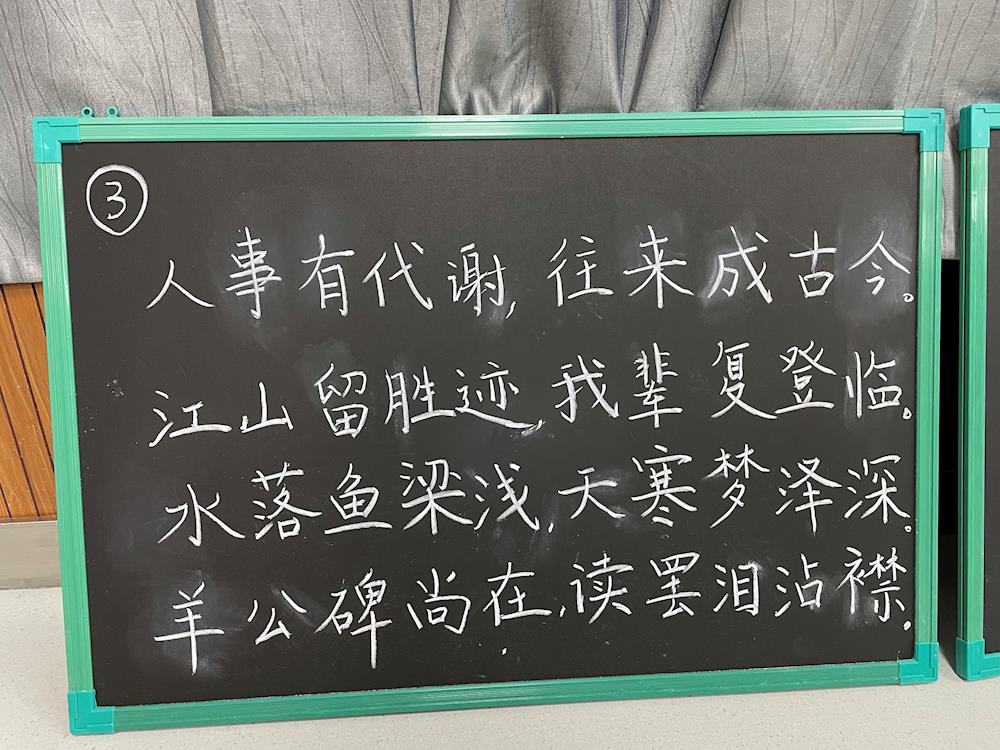 ③
人事有代谢,往来成古今。
江山留胜迹,我辈复登临。
水落鱼梁浅,天寒梦泽深。
羊公碑尚在,读罢泪沾襟。